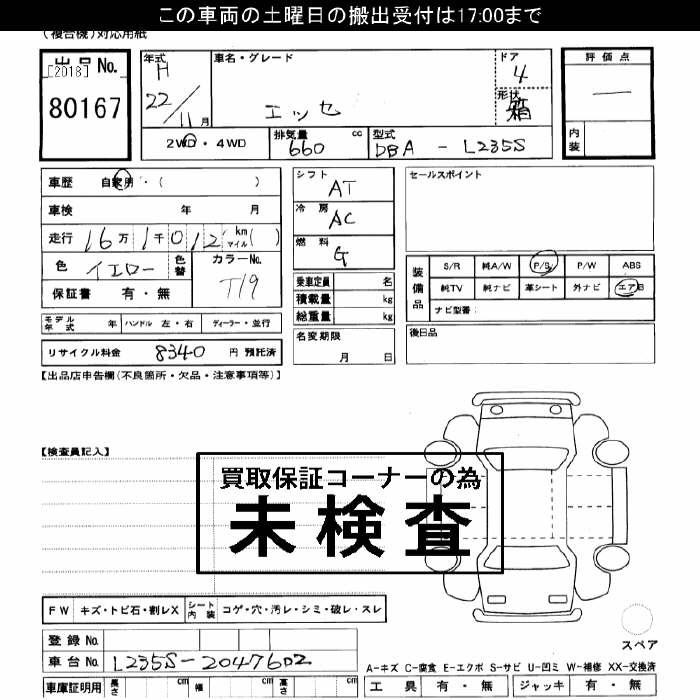 この車両の土曜日の搬出受付は17:00まで
(複合機)対応用紙
出品 No.
[2018]
80167
年式
H
22/11月
車名・グレード
エッセ
ドア
4
形状
箱
評価点
―
内装
2WD・4WD
排気量 cc
660
型式
DBA - L235S
車歴 自家用・( )
車検 年 月
走行 16万1千012 km マイル ( )
色 イエロー 色替
カラーNo.
T19
保証書 有・無
シフト
AT
冷房
AC
燃料
G
乗車定員 名
積載量 kg
総重量 kg
名変期限
月 日
セールスポイント
装備品
S/R 純A/W P/S P/W ABS
純TV 純ナビ 革シート 外ナビ エアB
ナビ型番:
後日品
モデル年式 年 ハンドル 左・右 ディーラー・並行
リサイクル料金 8340 円 預託済
【出品店申告欄(不良箇所・欠品・注意事項等)】
【検査員記入】
買取保証コーナーの為
未検査
FW キズ・トビ石・割レX シート内装 コゲ・穴・汚レ・シミ・破レ・スレ
登録 No.
車台 No. L235S-2047602
車庫証明用 長さ cm 幅 cm 高さ cm
スペア
A-キズ C-腐食 E-エクボ S-サビ U-凹ミ W-補修 XX-交換済
工具 有・無 ジャッキ 有・無